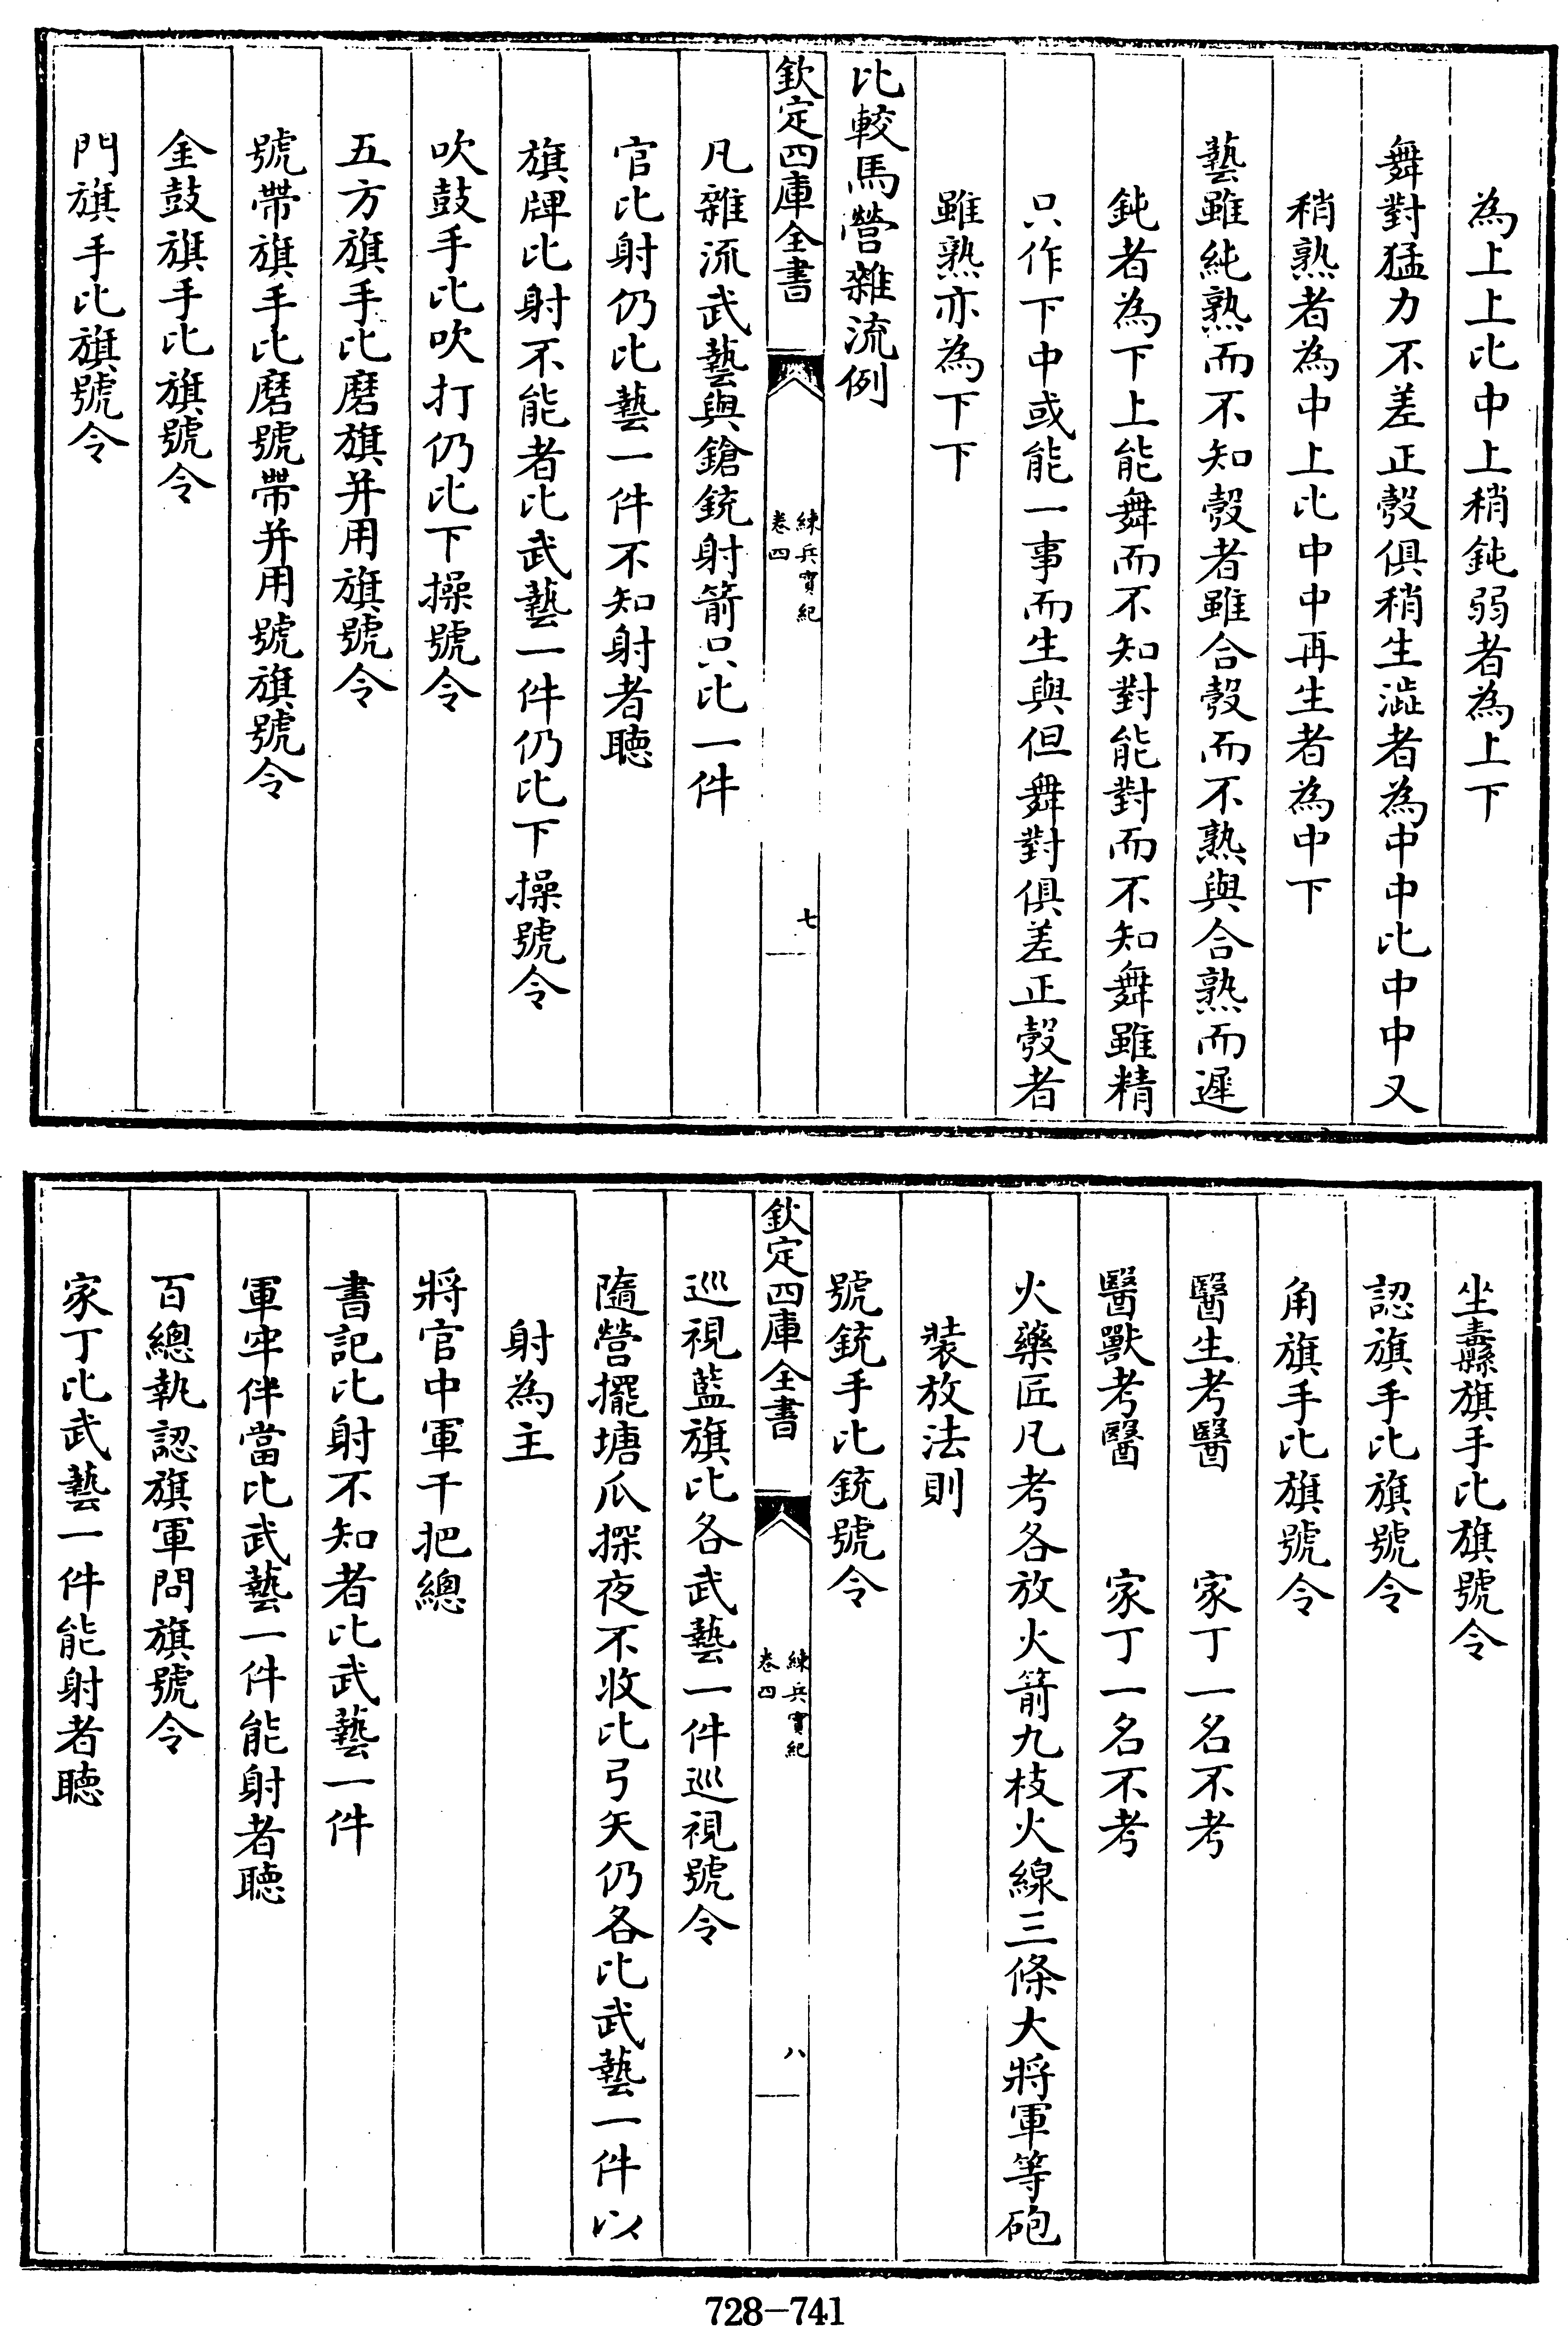 為上上比中上稍鈍弱者為上下
舞對猛力不差正彀俱稍生澁者為中中比中中又
稍熟者為中上比中中再生者為中下
藝雖純熟而不知彀者雖合彀而不熟與合熟而遲
鈍者為下上能舞而不知對能對而不知舞雖精
只作下中或能一事而生與但舞對俱差正彀者
雖熟亦為下下
比較馬營雜流例
欽定四庫全書
練兵實紀
卷四
七
凡雜流武藝與鎗銃射箭只比一件
官比射仍比藝一件不知射者聽
旗牌比射不能者比武藝一件仍比下操號令
吹鼓手比吹打仍比下操號令
五方旗手比磨旗并用旗號令
號帶旗手比磨號帶并用號旗號令
金鼓旗手比旗號令
門旗手比旗號令
坐纛旗手比旗號令
認旗手比旗號令
角旗手比旗號令
醫生考醫 家丁一名不考
醫獸考醫 家丁一名不考
火藥匠凡考各放火箭九枝火線三條大將軍等砲
裝放法則
號銃手比銃號令
欽定四庫全書
練兵實紀
卷四
八
巡視藍旗比各武藝一件巡視號令
隨營擺塘爪探夜不收比弓矢仍各比武藝一件以
射為主
將官中軍千把總
書記比射不知者比武藝一件
軍牢伴當比武藝一件能射者聽
百總執認旗軍問旗號令
家丁比武藝一件能射者聽
728-741